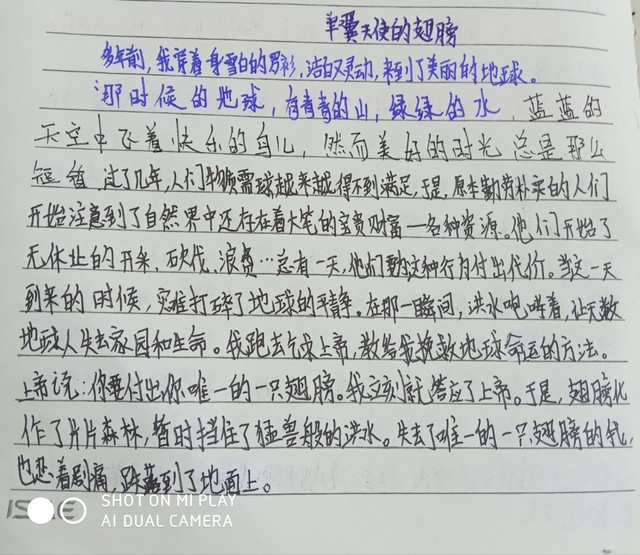 单翼天使的翅膀
多年前,我穿着一身雪白的罗衫,洁白又灵动,来到了美丽的地球。
那时候的地球,有青青的山,绿绿的水,蓝蓝的
天空中飞着快乐的鸟儿,然而美好的时光总是那么
短暂 过了几年,人们物质需球越来越得不到满足,于是,原本勤劳朴实的人们
开始注意到了自然界中还存在着大笔的宝贵财富—各种资源。他们开始了
无休止的开采、砍伐、浪费…总有一天,他们要为这种行为付出代价。当这一天
到来的时候,灾难打碎了地球的平静。在那一瞬间,洪水咆哮着,让无数
地球人失去家园和生命。我跑去乞求上帝,教给我挽救地球命运的方法。
上帝说:你要付出你唯一的一只翅膀。我立刻就答应了上帝。于是,翅膀化
作了片片森林,暂时挡住了猛兽般的洪水。失去了唯一的一只翅膀的我,
也忍着剧痛,跌落到了地面上。
SHOT ON MI PLAY
AI DUAL CAMERA